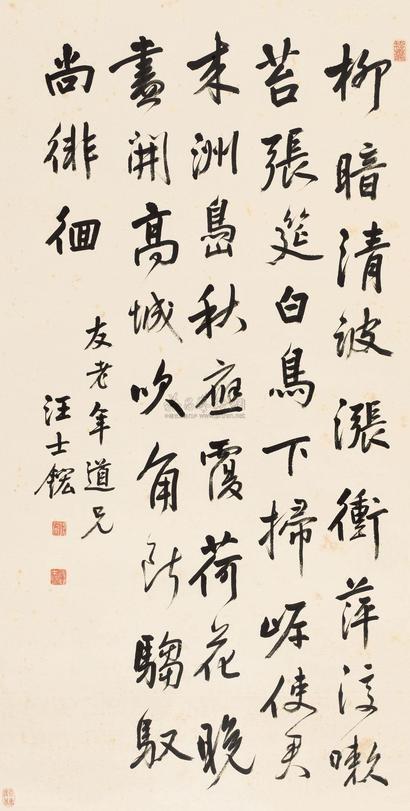 柳暗清波漲衝萍復嗽
苔張筵白鳥下掃岸使君
來洲島秋應覆荷花晚
盡開高城吹角断騶馭
尚徘徊
友老年道兄
汪士鋐